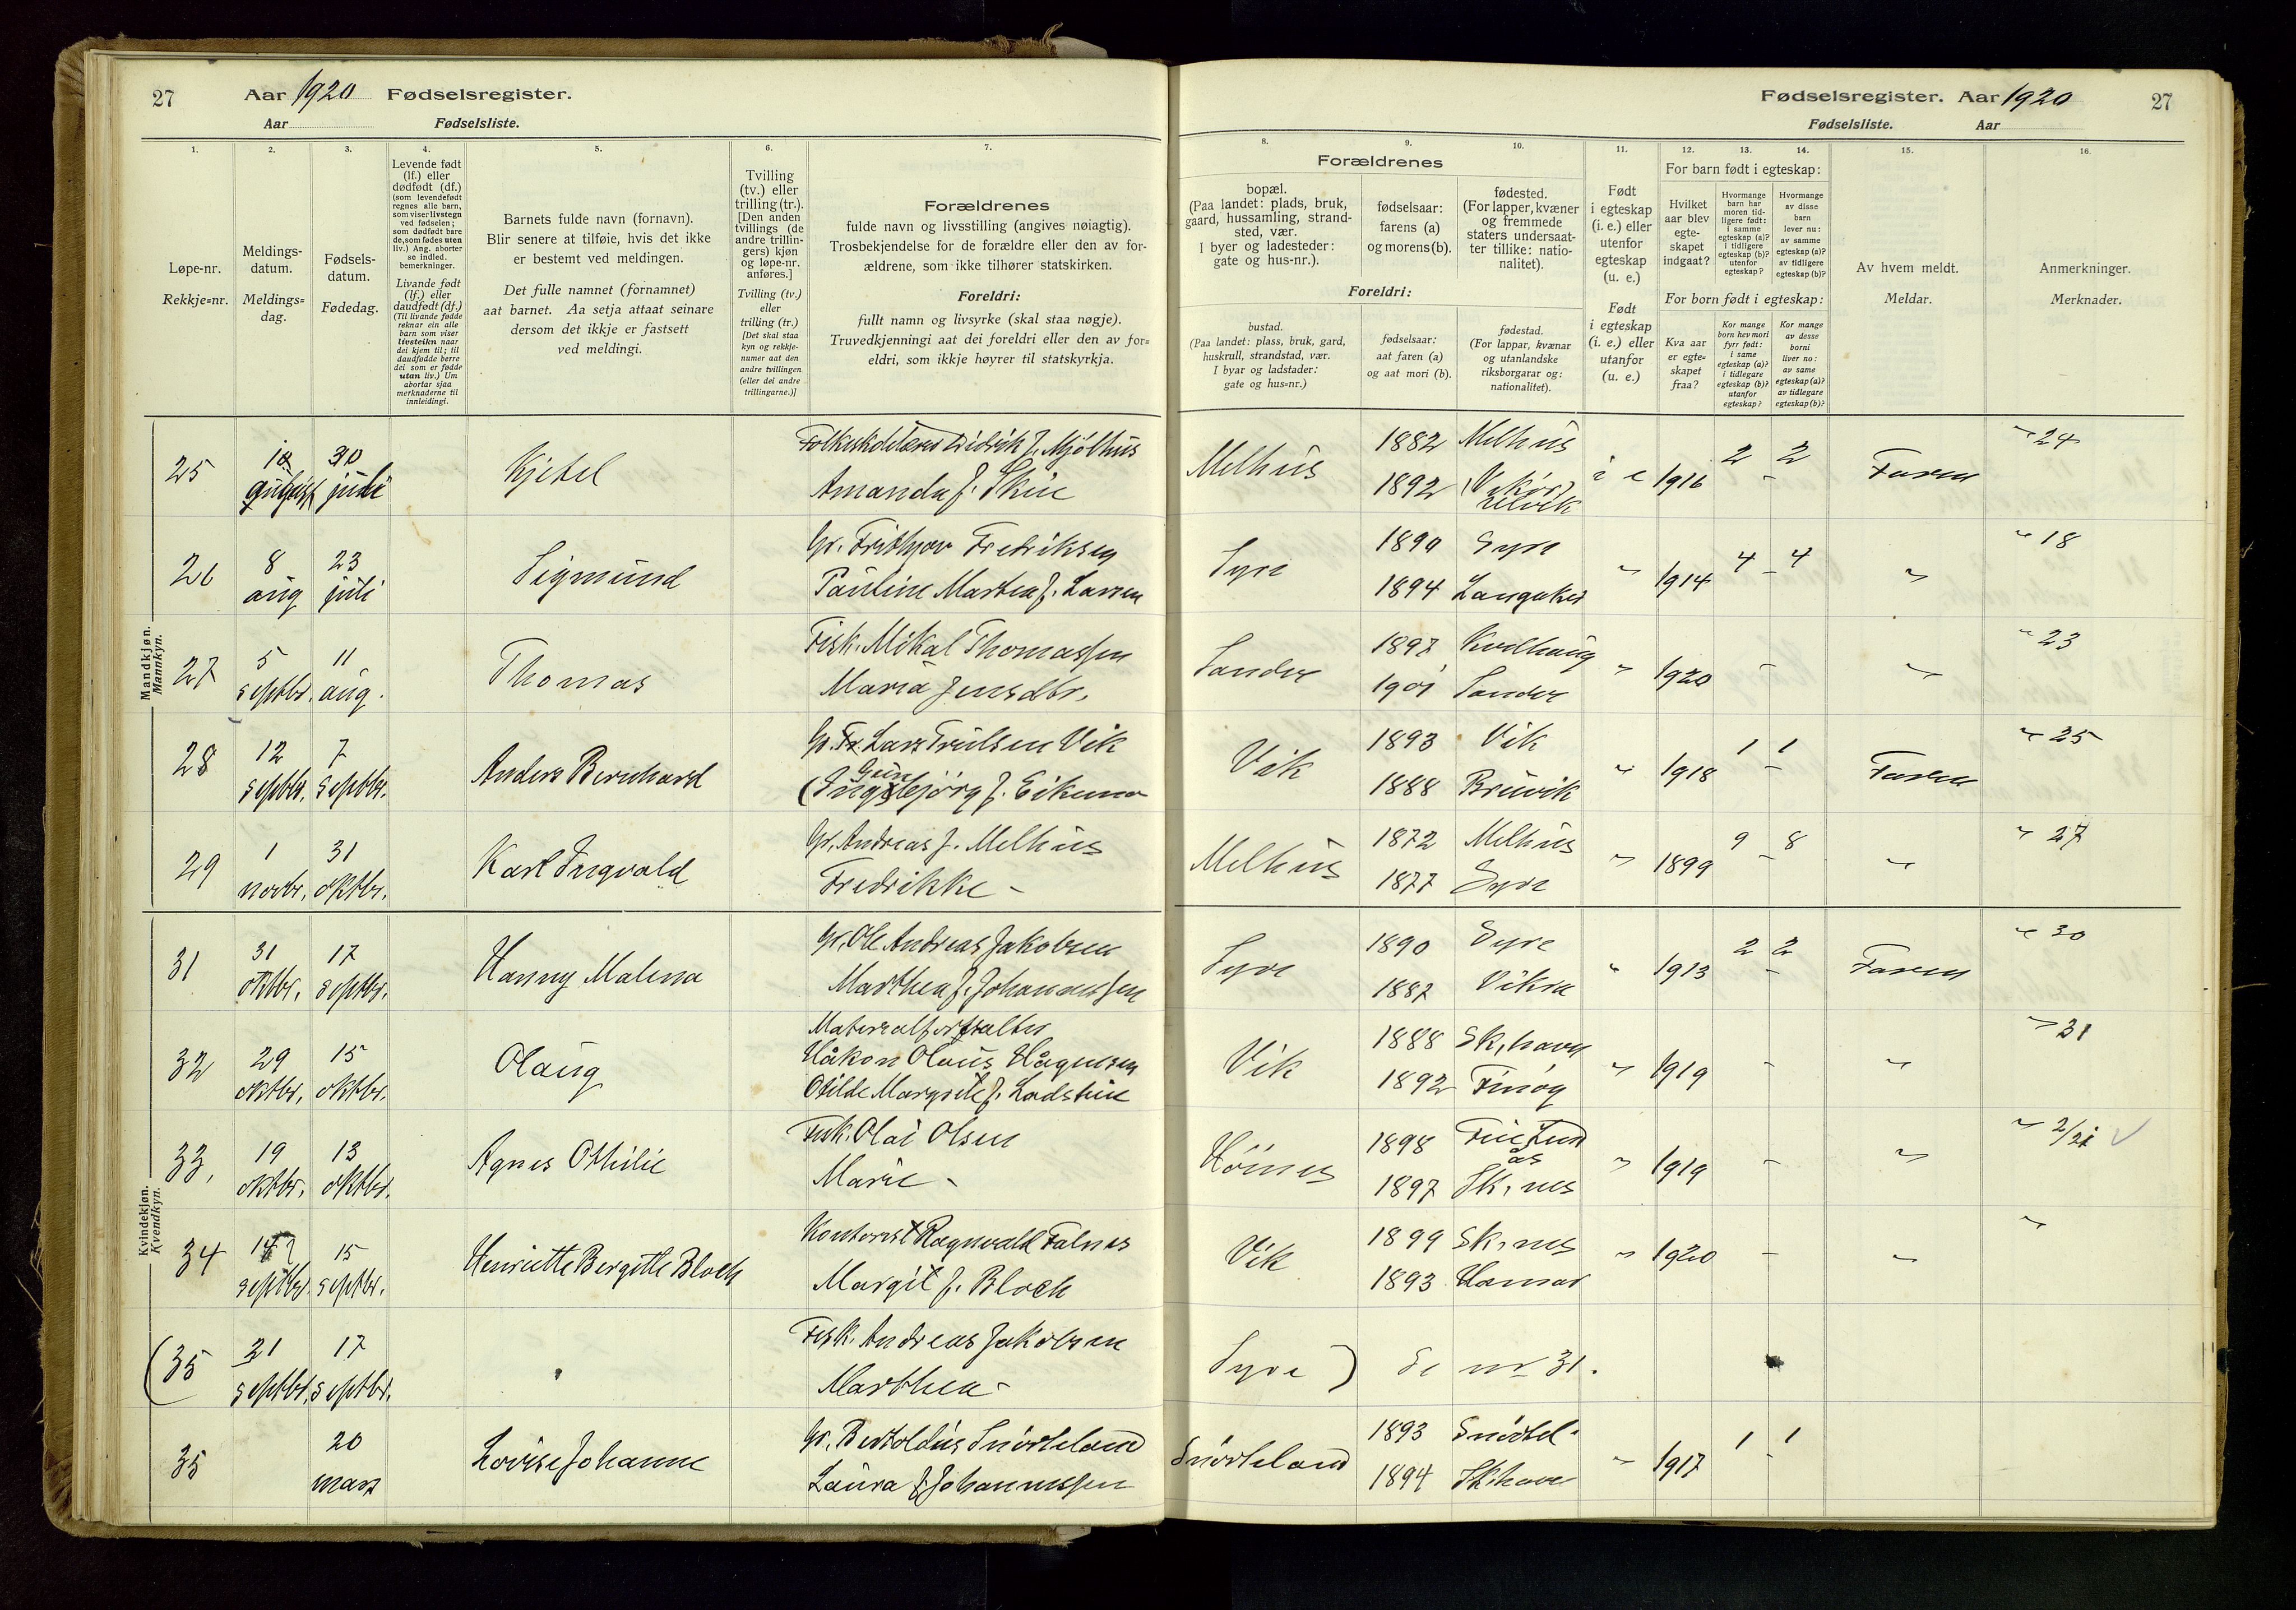 27 Aar 1920 Fødselsregister.
Aar Fødselsliste.
Fødselsregister. Aar 1920 27
Fødselsliste. Aar
1. 2. 3. 4. 5. 6. 7.
8. 9. 10. 11. 12. 13. 14. 15. 16.
Løpe-nr.
Rekkje=nr.
Meldings-
datum.
Meldings=
dag.
Fødsels-
datum.
Fødedag.
Levende født
(lf.) eller
dødfødt (df.)
(som levendefødt
regnes alle barn,
som viser livstegn
ved fødselen;
som dødfødt bare
de, som fødes uten
liv.) Ang. aborter
se indled.
bemerkninger.
Livande født
(lf.) eller
daudfødt (df.)
(Til livande fødde
reknar ein alle
barn som viser
livsteikn naar
dei kjem til; til
daudfødde berre
dei som er fødde
utan liv.) Um
abortar sjaa
merknaderne til
innleidingi.
Barnets fulde navn (fornavn).
Blir senere at tilføie, hvis det ikke
er bestemt ved meldingen.
Det fulle namnet (fornamnet)
aat barnet. Aa setja attaat seinare
dersom det ikkje er fastsett
ved meldingi.
Tvilling
(tv.) eller
trilling (tr.).
[Den anden
tvillings (de
andre trillin-
gers) kjøn
og løpe-nr.
anføres.]
Tvilling (tv.)
eller
trilling (tr.)
[Det skal staa
kyn og rekkje-
numer aat den
andre tvillingen
(eller dei andre
trillingarne.)]
Forældrenes
fulde navn og livsstilling (angives nøiagtig).
Trosbekjendelse for de forældre eller den av for-
ældrene, som ikke tilhører statskirken.
Foreldri:
fullt namn og livsyrke (skal staa nøgje).
Truvedkjenningi aat dei foreldri eller den av for=
eldri, som ikkje høyrer til statskyrkja.
Forældrenes
bopæl.
(Paa landet: plads, bruk,
gaard, hussamling, strand-
sted, vær.
I byer og ladesteder:
gate og hus-nr.).
fødselsaar:
farens (a)
og morens (b).
fødested.
(For lapper, kvæner
og fremmede
staters undersaat-
ter tillike: natio-
nalitet).
Foreldri:
bustad.
(Paa landet: plass, bruk, gard,
huskrull, strandstad, vær.
I byar og ladstader:
gate og hus=nr.)
fødselsaar:
aat faren (a)
og aat mori (b).
fødestad.
(For lappar, kvænar
og utanlandske
riksborgarar og:
nationalitet).
Født
i egteskap
(i. e.) eller
utenfor
egteskap
(u. e.)
Født
i egteskap
(i. e.) eller
utanfor
(u. e.)
For barn født i egteskap:
Hvilket
aar blev
egte-
skapet
indgaat?
Hvormange
barn har
moren tid-
ligere født:
i samme
egteskap (a)?
i tidligere
egteskap (b)?
utenfor
egteskap?
Hvormange
av disse
barn
lever nu:
av samme
egteskap (a)?
av tidligere
egteskap (b)?
For born født i egteskap:
Kva aar
er egte=
skapet
fraa?
Kor mange
born hev mori
fyrr født:
i same
egteskap (a)?
i tidlegare
egteskap (b)?
utanfor
egteskap?
Kor mange
av desse
borni
liver no:
av same
egteskap (a)?
av tidlegare
egteskap (b)?
Av hvem meldt.
Meldar.
Anmerkninger.
Merknader.
Mandkjøn.
Mannkyn.
25 august 30 juli Kjetel Didrik J. Mjølhus
Amanda f. Melhus 1882 Melhus
1892 i e 1916 2 - 2 Faren " 24
26 8 aug 23 juli Sigmund Gr. Frithjov Fredriksen
Pauline Martea f. Larsen Syre 1890 Syre
1894 Langaker " 1914 4 - 4 " " 18
27 5 septbr. 11 aug. Thomas Fisk. Mikal Thomassen
Maria Jensdtr. Sandve 1897 Kvilhaug
1901 Sandve " 1920 - " " 23
28 12 septbr. 7 septbr. Anders Bernhard Gr. Lars Trulsen Vik
Gun Vik 1893 Vik
1888 Bruvik " 1918 1 - 1 Faren " 25
29 1 novbr. 31 oktbr. Karl Ingvald Gr. Andreas J. Melhus
Fredrikke - Melhus 1872 Melhus
1877 Syre " 1899 9 - 8 " " 27
Kvindekjøn.
Kvendkyn.
31 31 oktbr. 17 septbr. Hanny Malena Gr. Ole Andreas Jakobsen
Marthea f. Johannessen Syre 1890 Syre
1887 Vikra " 1913 2 - 2 Faren " 30
32 29 oktbr. 15 oktbr. Olaug Materialforvalter
Håkon Olaus Hågensen
Otilde Margrete f. Lodstein Vik 1888 Sk.havn
1892 Finøy " 1919 - " " 31
33, 19 oktbr. 13 oktbr. Agnes Othilie Fisk. Olai Olsen
Marie - Høines 1898
1897 Sk.nes " 1919 - " " 2/21
34 septbr. 15 septbr. Henriette Bergitte Bloch Kontorist Ragnvald Falnes
Margit f. Bloch Vik 1899 Sk.nes
1893 Hamar " 1920 - " "
(35 21 septbr. 17 septbr. Fisk. Andreas Jakobsen
Marthea - Syre) Se nr 31.
35 20 mars Lovise Johanne Gr. Bertoldus Snørteland
Laura f. Johannessen Snørteland 1893 Snørtel.
1894 Sk.havn " 1917 1 - 1